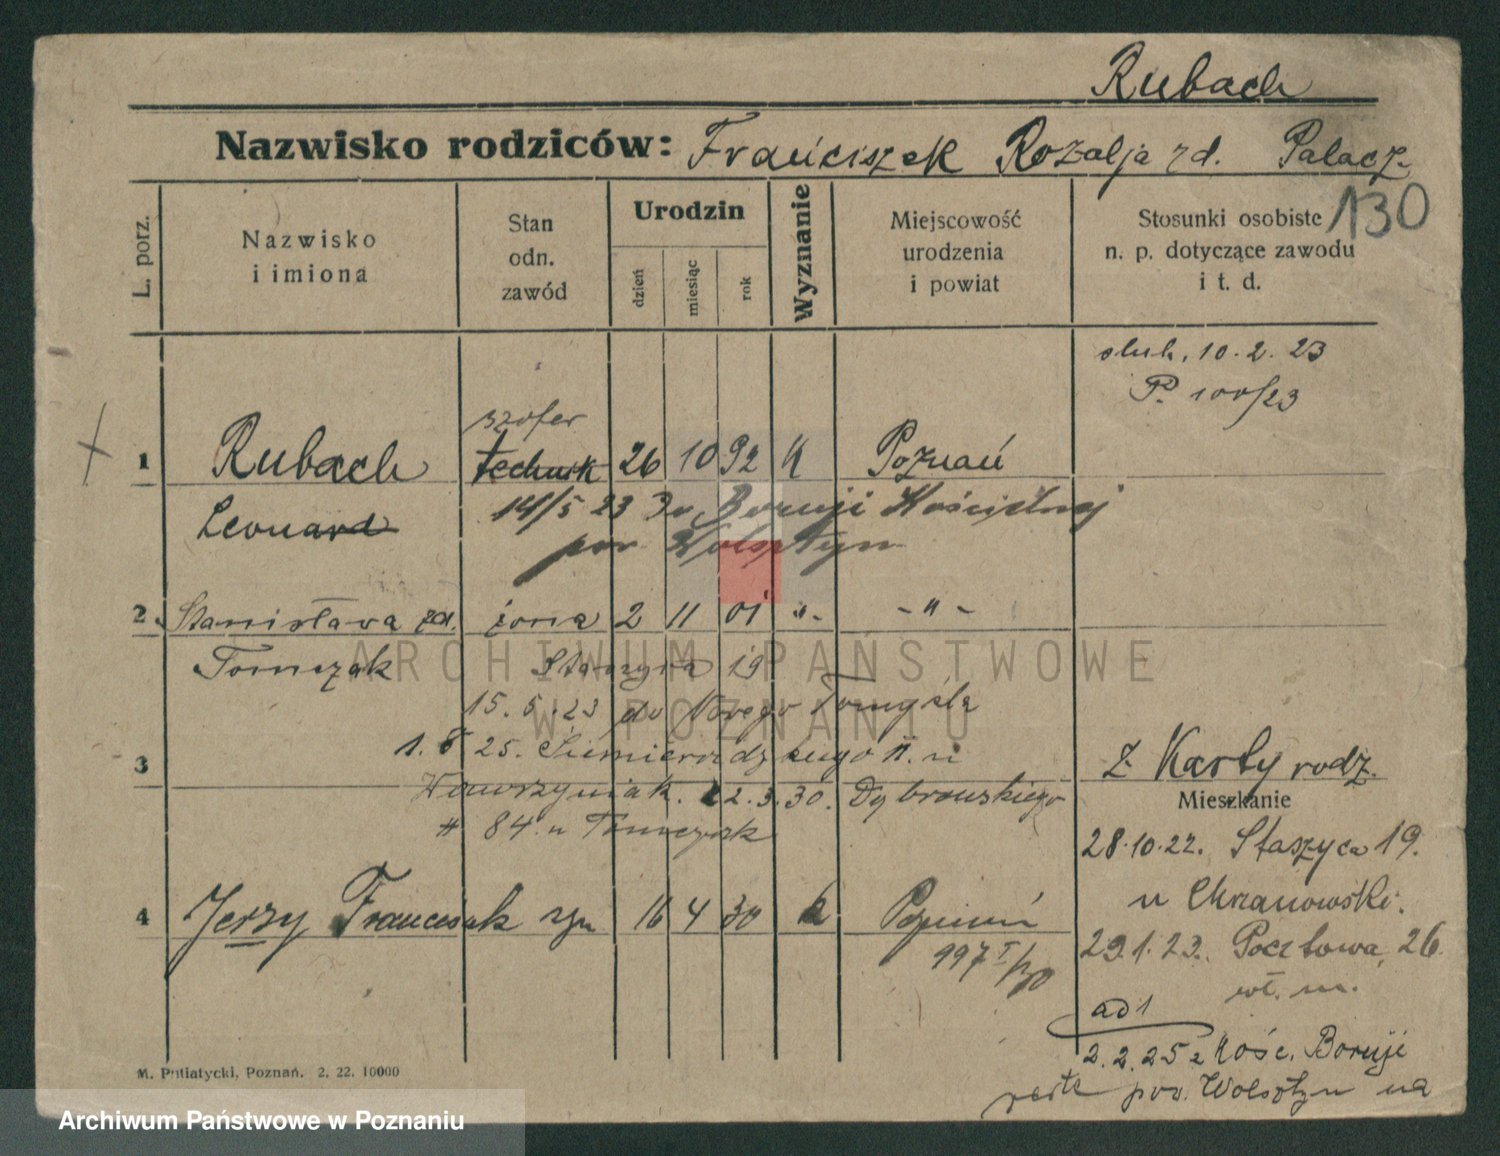 Rubach
Nazwisko rodziców: Franciszek Rozalja zd. Palacz
130
L. porz.
Nazwisko i imiona
Stan odn. zawód
Urodzin
dzień
miesiąc
rok
Wyznanie
Miejscowość urodzenia i powiat
Stosunki osobiste n. p. dotyczące zawodu i t. d.
ślub. 10. 2. 23
P. 100/23
szofer
1 Rubach technik 26 10 92 K Poznań
Leonard 14/5 23 Boruji Kościelnej
pow Wolsztyn
2 Stanisława zd. żona 2 11 01 „ - „ -
Tomczak Staszyca 19
15. 5. 23 do Nowego Tomyśla
25. Siemieradzkiego 11. u
3 z Karty rodz.
Mieszkanie
Wawrzyniak. 2. 3. 30. Dąbrowskiego
84. u Tomczak
28. 10. 22. Staszyca 19.
u Chrzanowski.
4 Jerzy Franciszek syn 16 4 30 k Poznań
997 I/30
29. 1. 23. Pocztowa, 26
wł. m.
ad 1
2. 2. 25 z Kośc. Boruji
pow. Wolsztyn na
M. Putiatycki, Poznań. 2. 22. 10000
ARCHIWUM PAŃSTWOWE
W POZNANIU
Archiwum Państwowe w Poznaniu